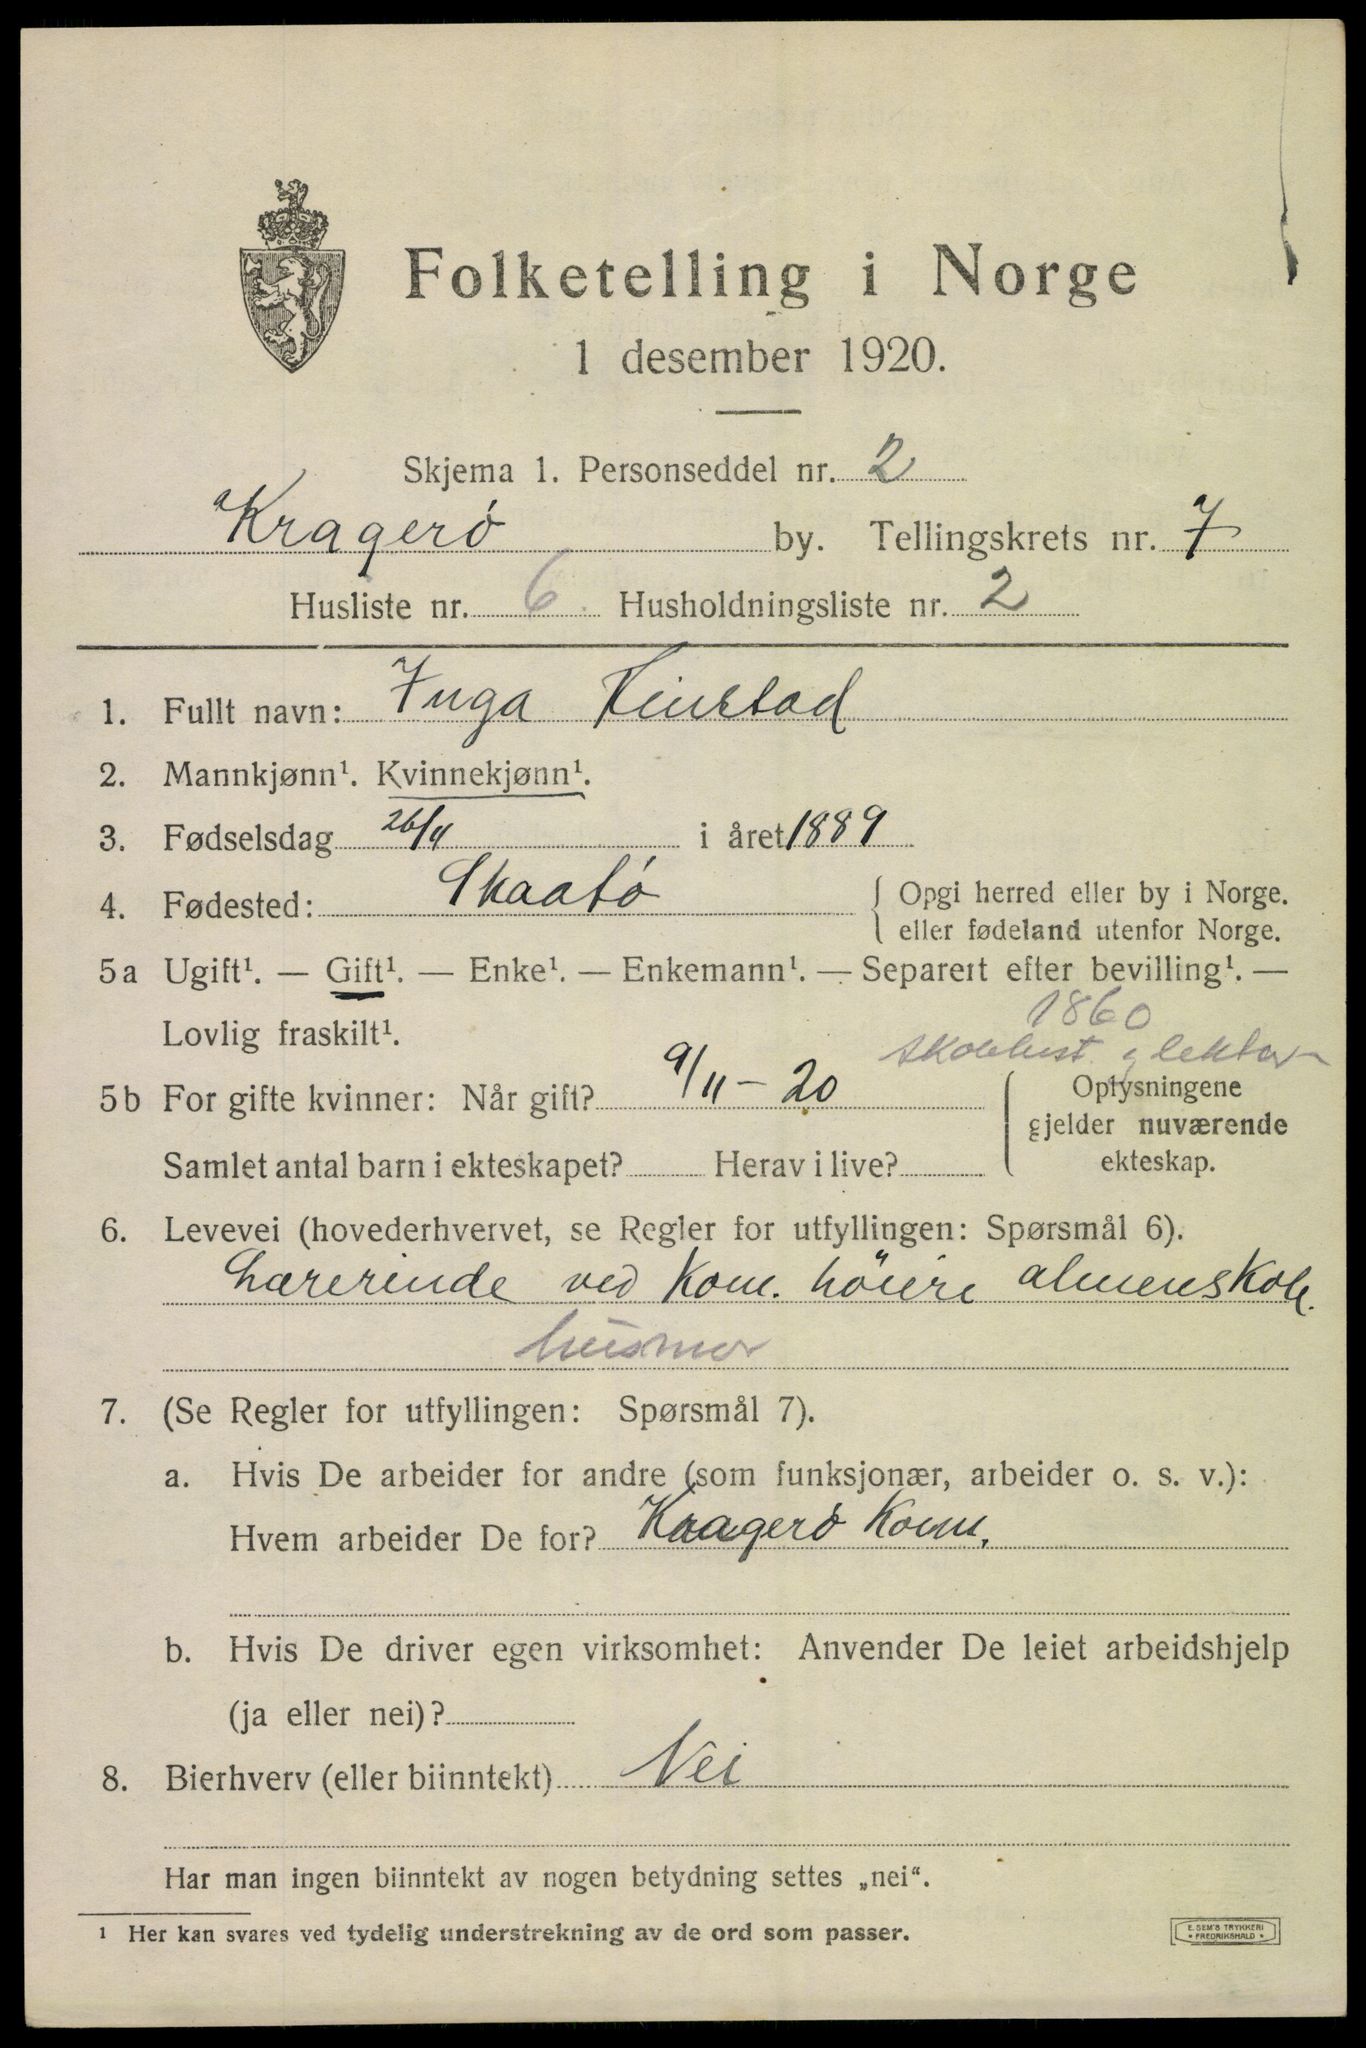 Folketelling i Norge
1 desember 1920.
Skjema 1. Personseddel nr. 2
Kragerö by. Tellingskrets nr. 7
Husliste nr. 6 Husholdningsliste nr. 2
1. Fullt navn: Inga Finstad
2. Mannkjønn¹. Kvinnekjønn¹.
3. Fødselsdag 26/4 i året 1889
4. Fødested: Skaatö
{ Opgi herred eller by i Norge.
eller fødeland utenfor Norge.
5a Ugift¹. — Gift¹. — Enke¹. — Enkemann¹. — Separert efter bevilling¹. —
Lovlig fraskilt¹.
1860
lektor
5b For gifte kvinner: Når gift? 9/11 - 20
Samlet antal barn i ekteskapet? Herav i live?
Oplysningene
gjelder nuværende
ekteskap.
6. Levevei (hovederhvervet, se Regler for utfyllingen: Spørsmål 6).
Lærerinde ved Kom. höiere almenskole.
husmor
7. (Se Regler for utfyllingen: Spørsmål 7).
a. Hvis De arbeider for andre (som funksjonær, arbeider o. s. v.):
Hvem arbeider De for? Kragerö Kom.
b. Hvis De driver egen virksomhet: Anvender De leiet arbeidshjelp
(ja eller nei)?
8. Bierhverv (eller biinntekt) Nei
Har man ingen biinntekt av nogen betydning settes „nei".
¹ Her kan svares ved tydelig understrekning av de ord som passer.
E. SEM'S TRYKKERI
• FREDRIKSHALD •